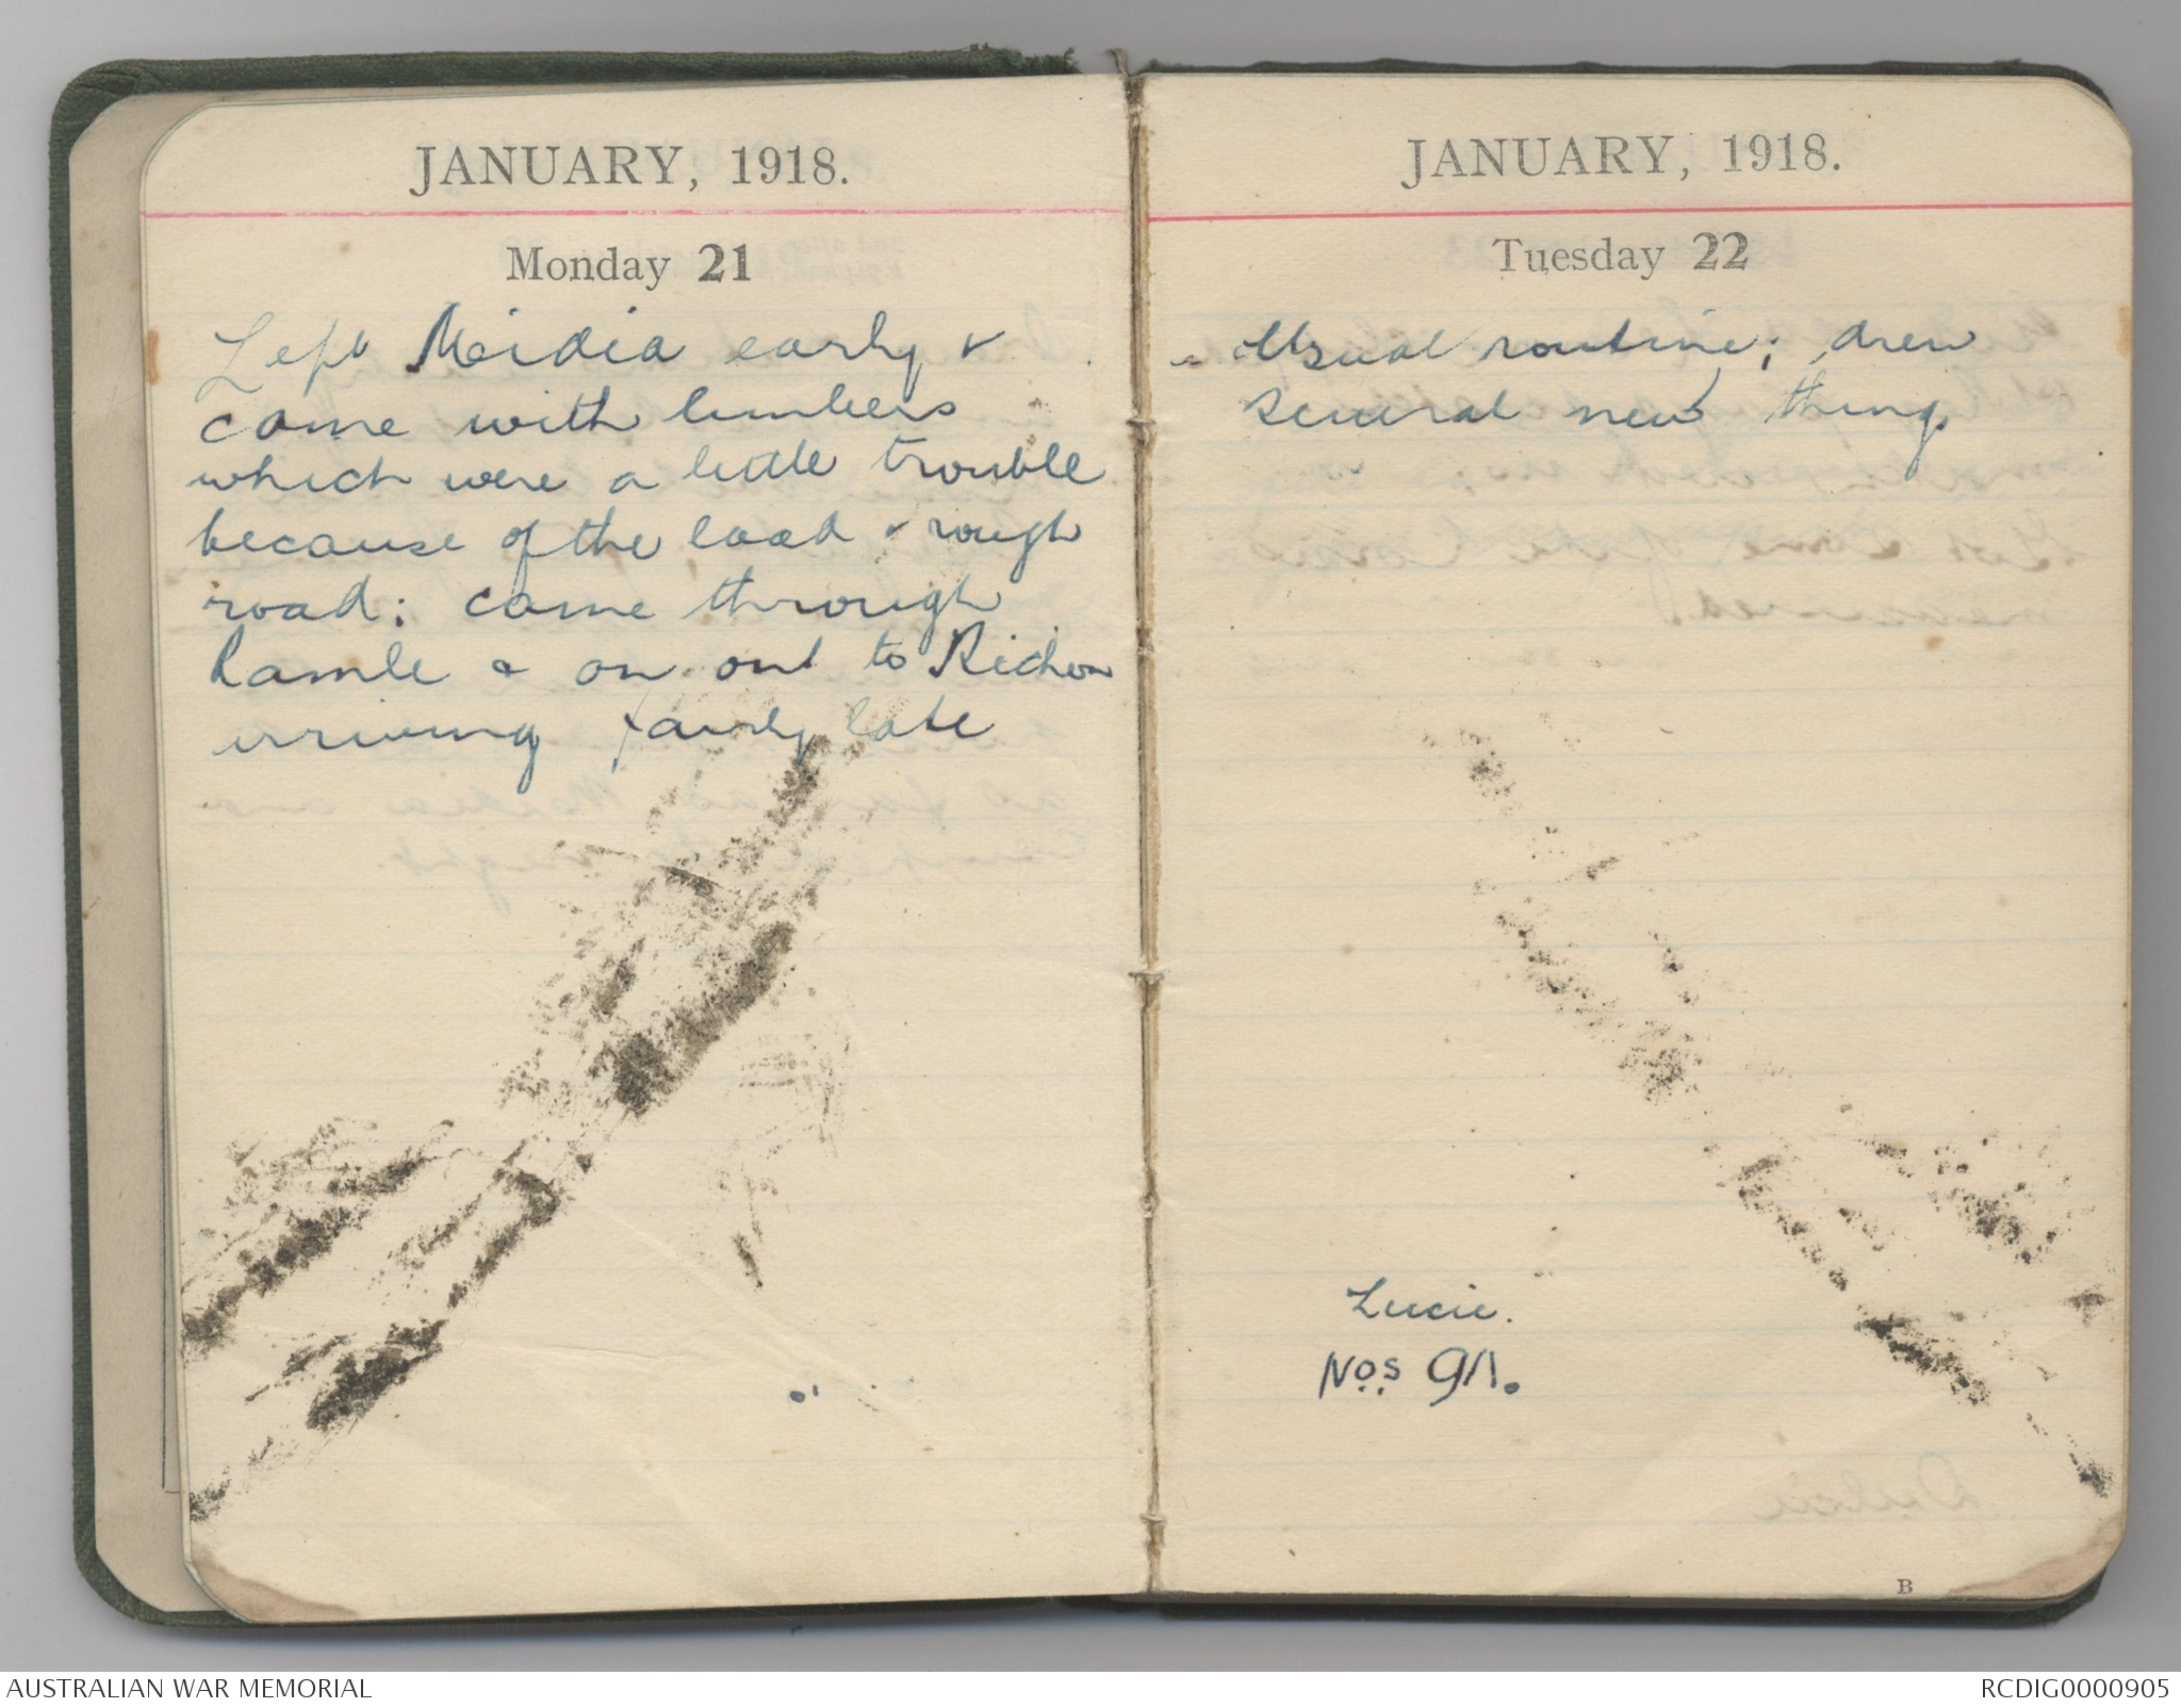 JANUARY, 1918.
Monday 21
Left Meidia early &
came with limbers
which were a little trouble
because of the load & rough
road: came through
Ramle & on out to Richon
arriving fairly late
JANUARY, 1918.
Tuesday 22
Usual routine; drew
several new things
Lucie.
Nos 91.
B
AUSTRALIAN WAR MEMORIAL
RCDIG0000905